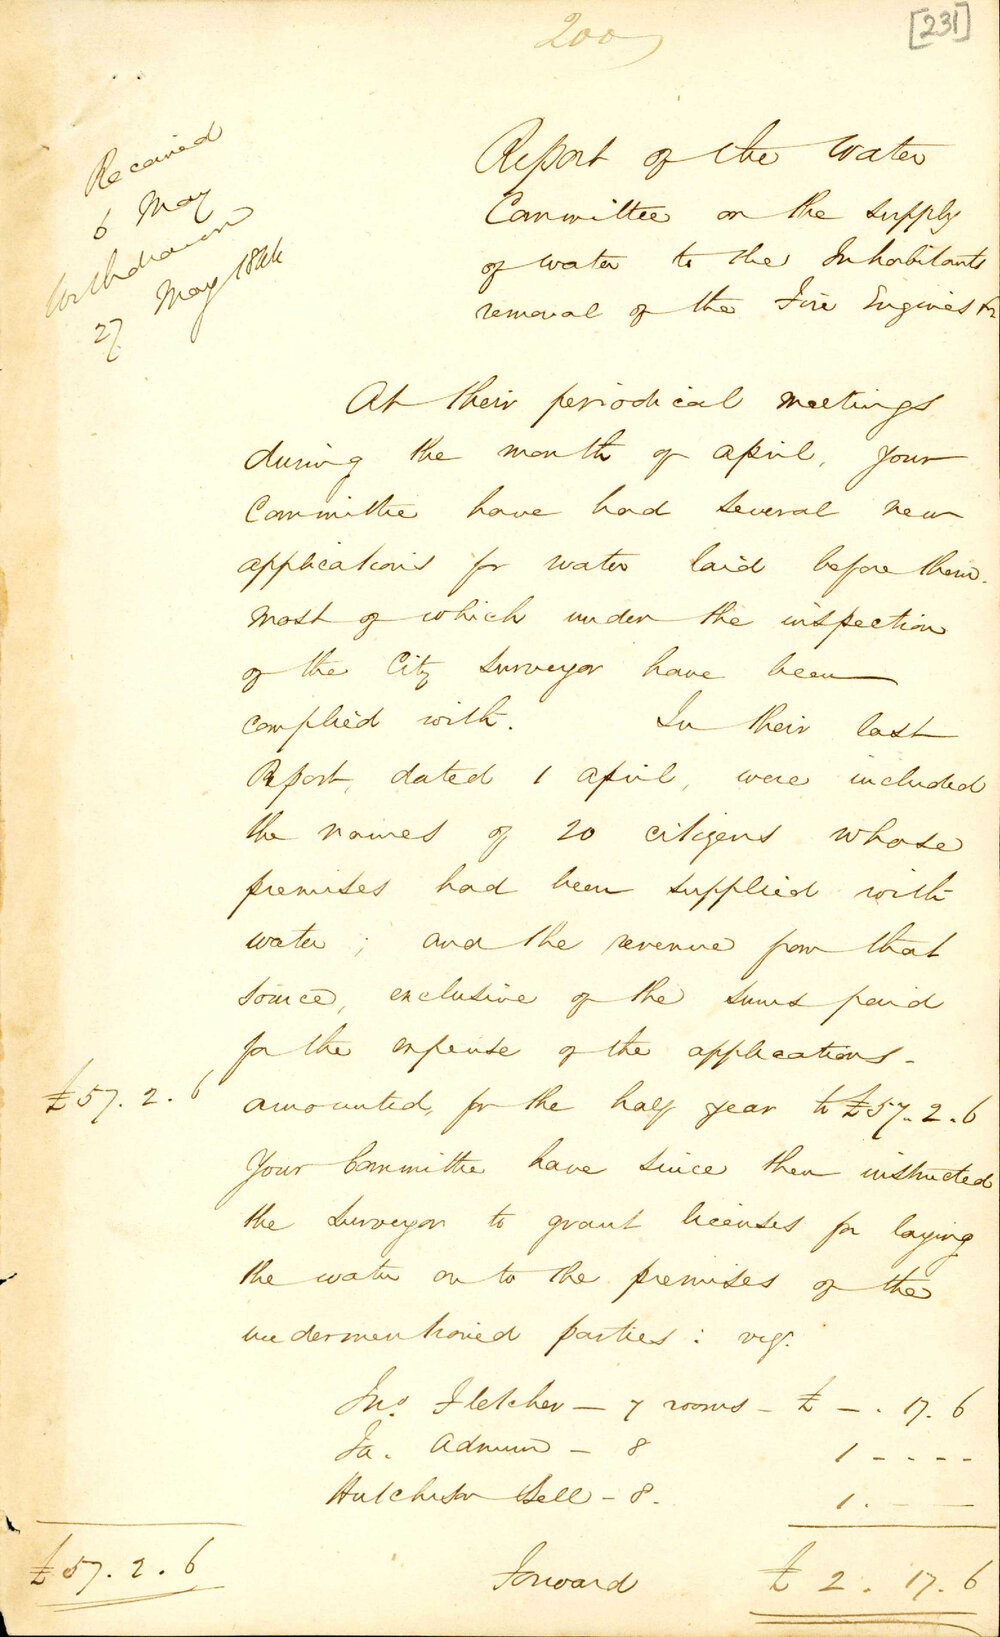 200
[231]
Received
6 May
Withdrawn
27 May 1844
Report of the Water
Committee on the supply
of water to the Inhabitants
removal of the Fire Engines &c
At their periodical meetings
during the month of April, your
Committee have had several new
applications for water laid before them.
most of which under the inspection
of the City Surveyor have been
complied with. In their last
Report, dated 1 April, were included
the names of 20 citizens whose
premises had been supplied with
water; and the revenue from that
source, exclusive of the sums paid
for the expense of the applications -
£57. 2. 6
amounted, for the half year to £57. 2. 6
Your Committee have since then instructed
the Surveyor to grant licenses for laying
the water on to the premises of the
undermentioned parties: viz.
Jno. Fletcher — 7 rooms - £ -. 17. 6
Ja. - 8 1 - - - -
Hutchison Bell - 8. 1. - -
£57. 2. 6
Forward £ 2. 17. 6